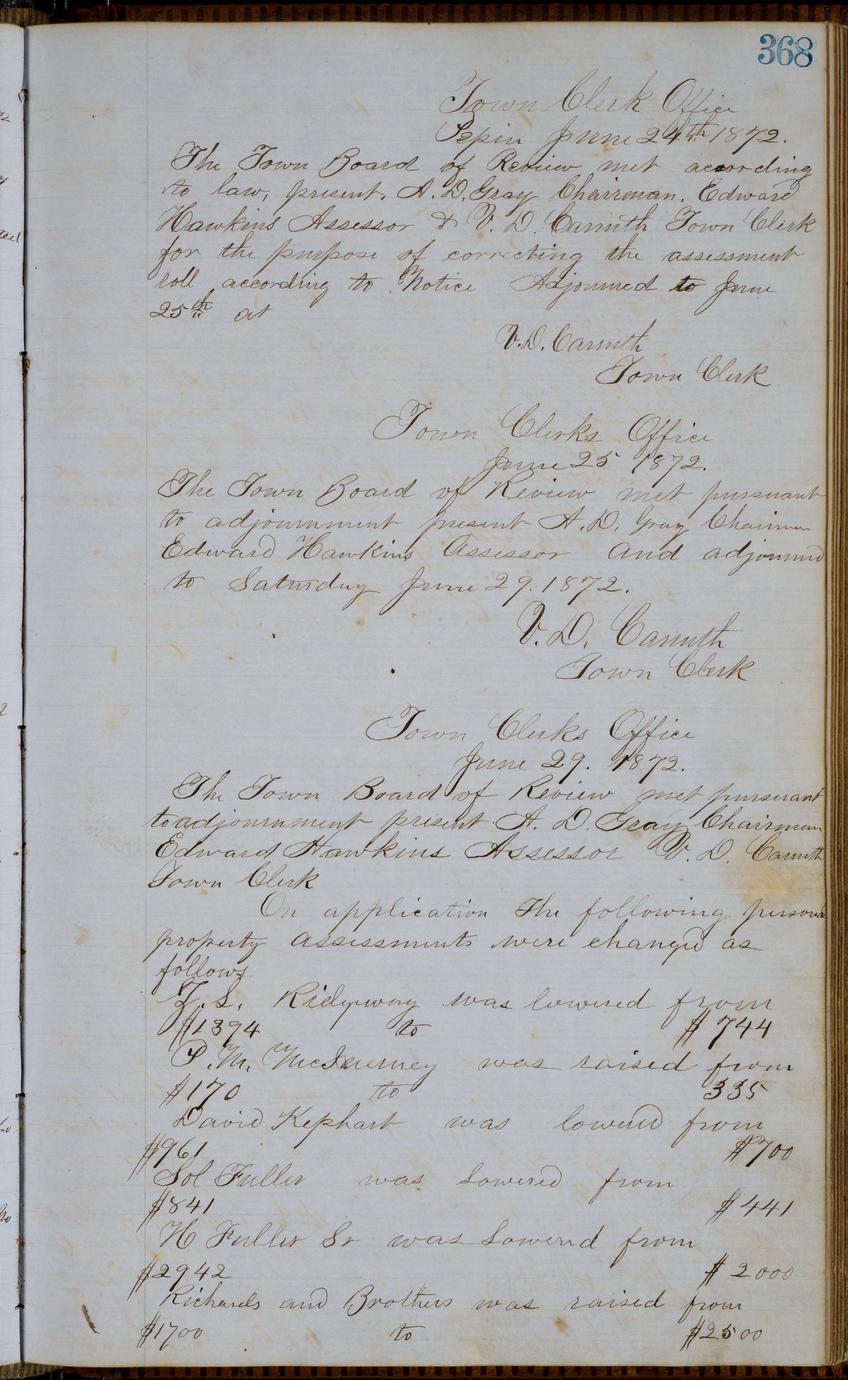 368
Town Clerk Office
Pepin June 24th 1872.
The Town Board of Review met according
to law, present, A. D. Gray Chairman, Edward
Hawkins Assessor & V. D. Carruth Town Clerk
for the purpose of correcting the assessment
roll according to Notice Adjourned to June
25th at
V. D. Carruth
Town Clerk
Town Clerks Office
June 25 1872.
The Town Board of Review met pursuant
to adjournment present A. D. Gray Chairman
Edward Hawkins Assessor and adjourned
to Saturday June 29. 1872.
V. D. Carruth
Town Clerk
Town Clerks Office
June 29. 1872.
The Town Board of Review met pursuant
to adjournment present A. D. Gray Chairman
Edward Hawkins Assessor V. D. Carruth
Town Clerk
On application The following personal
property assessments were changed as
follows
S. Ridgway was lowered from
$1394 to $744
P. M. McInerney was raised from
$170 to 335
David Kephart was lowered from
$961 $700
Sol Fuller was lowered from
$841 $441
H Fuller Sr was lowered from
$2942 $2000
Richards and Brothers was raised from
$1700 to $2500